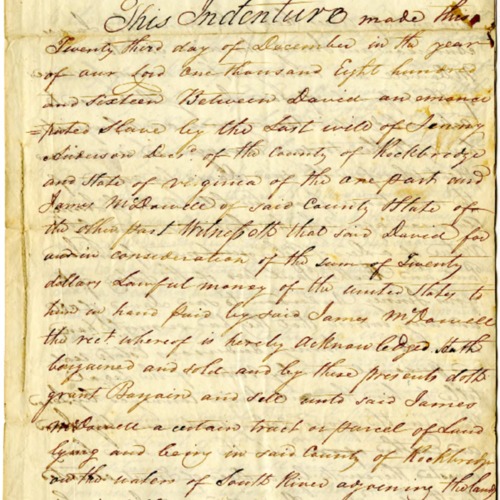 This Indenture made this
Twenty third day of December in the year
of our Lord One thousand Eight hundred
and sixteen Between David an emanci
=pated Slave by the Last will of Jenny
Decd. of the County of Rockbridge
and State of virginia of the one part and
James McDowell of said County & State of
the other part Witnesseth that said David for
and in consideration of the sum of Twenty
dollars Lawful money of the united States to
him in hand paid by said James McDowell
the rect whereof is hereby acknowledged hath
bargained and sold and by these presents doth
grant Bargain and Sell unto said James
McDowell a certain tract or parcel of Land
lying and being in said County of Rockbridge
on the waters of South River adjoining the land